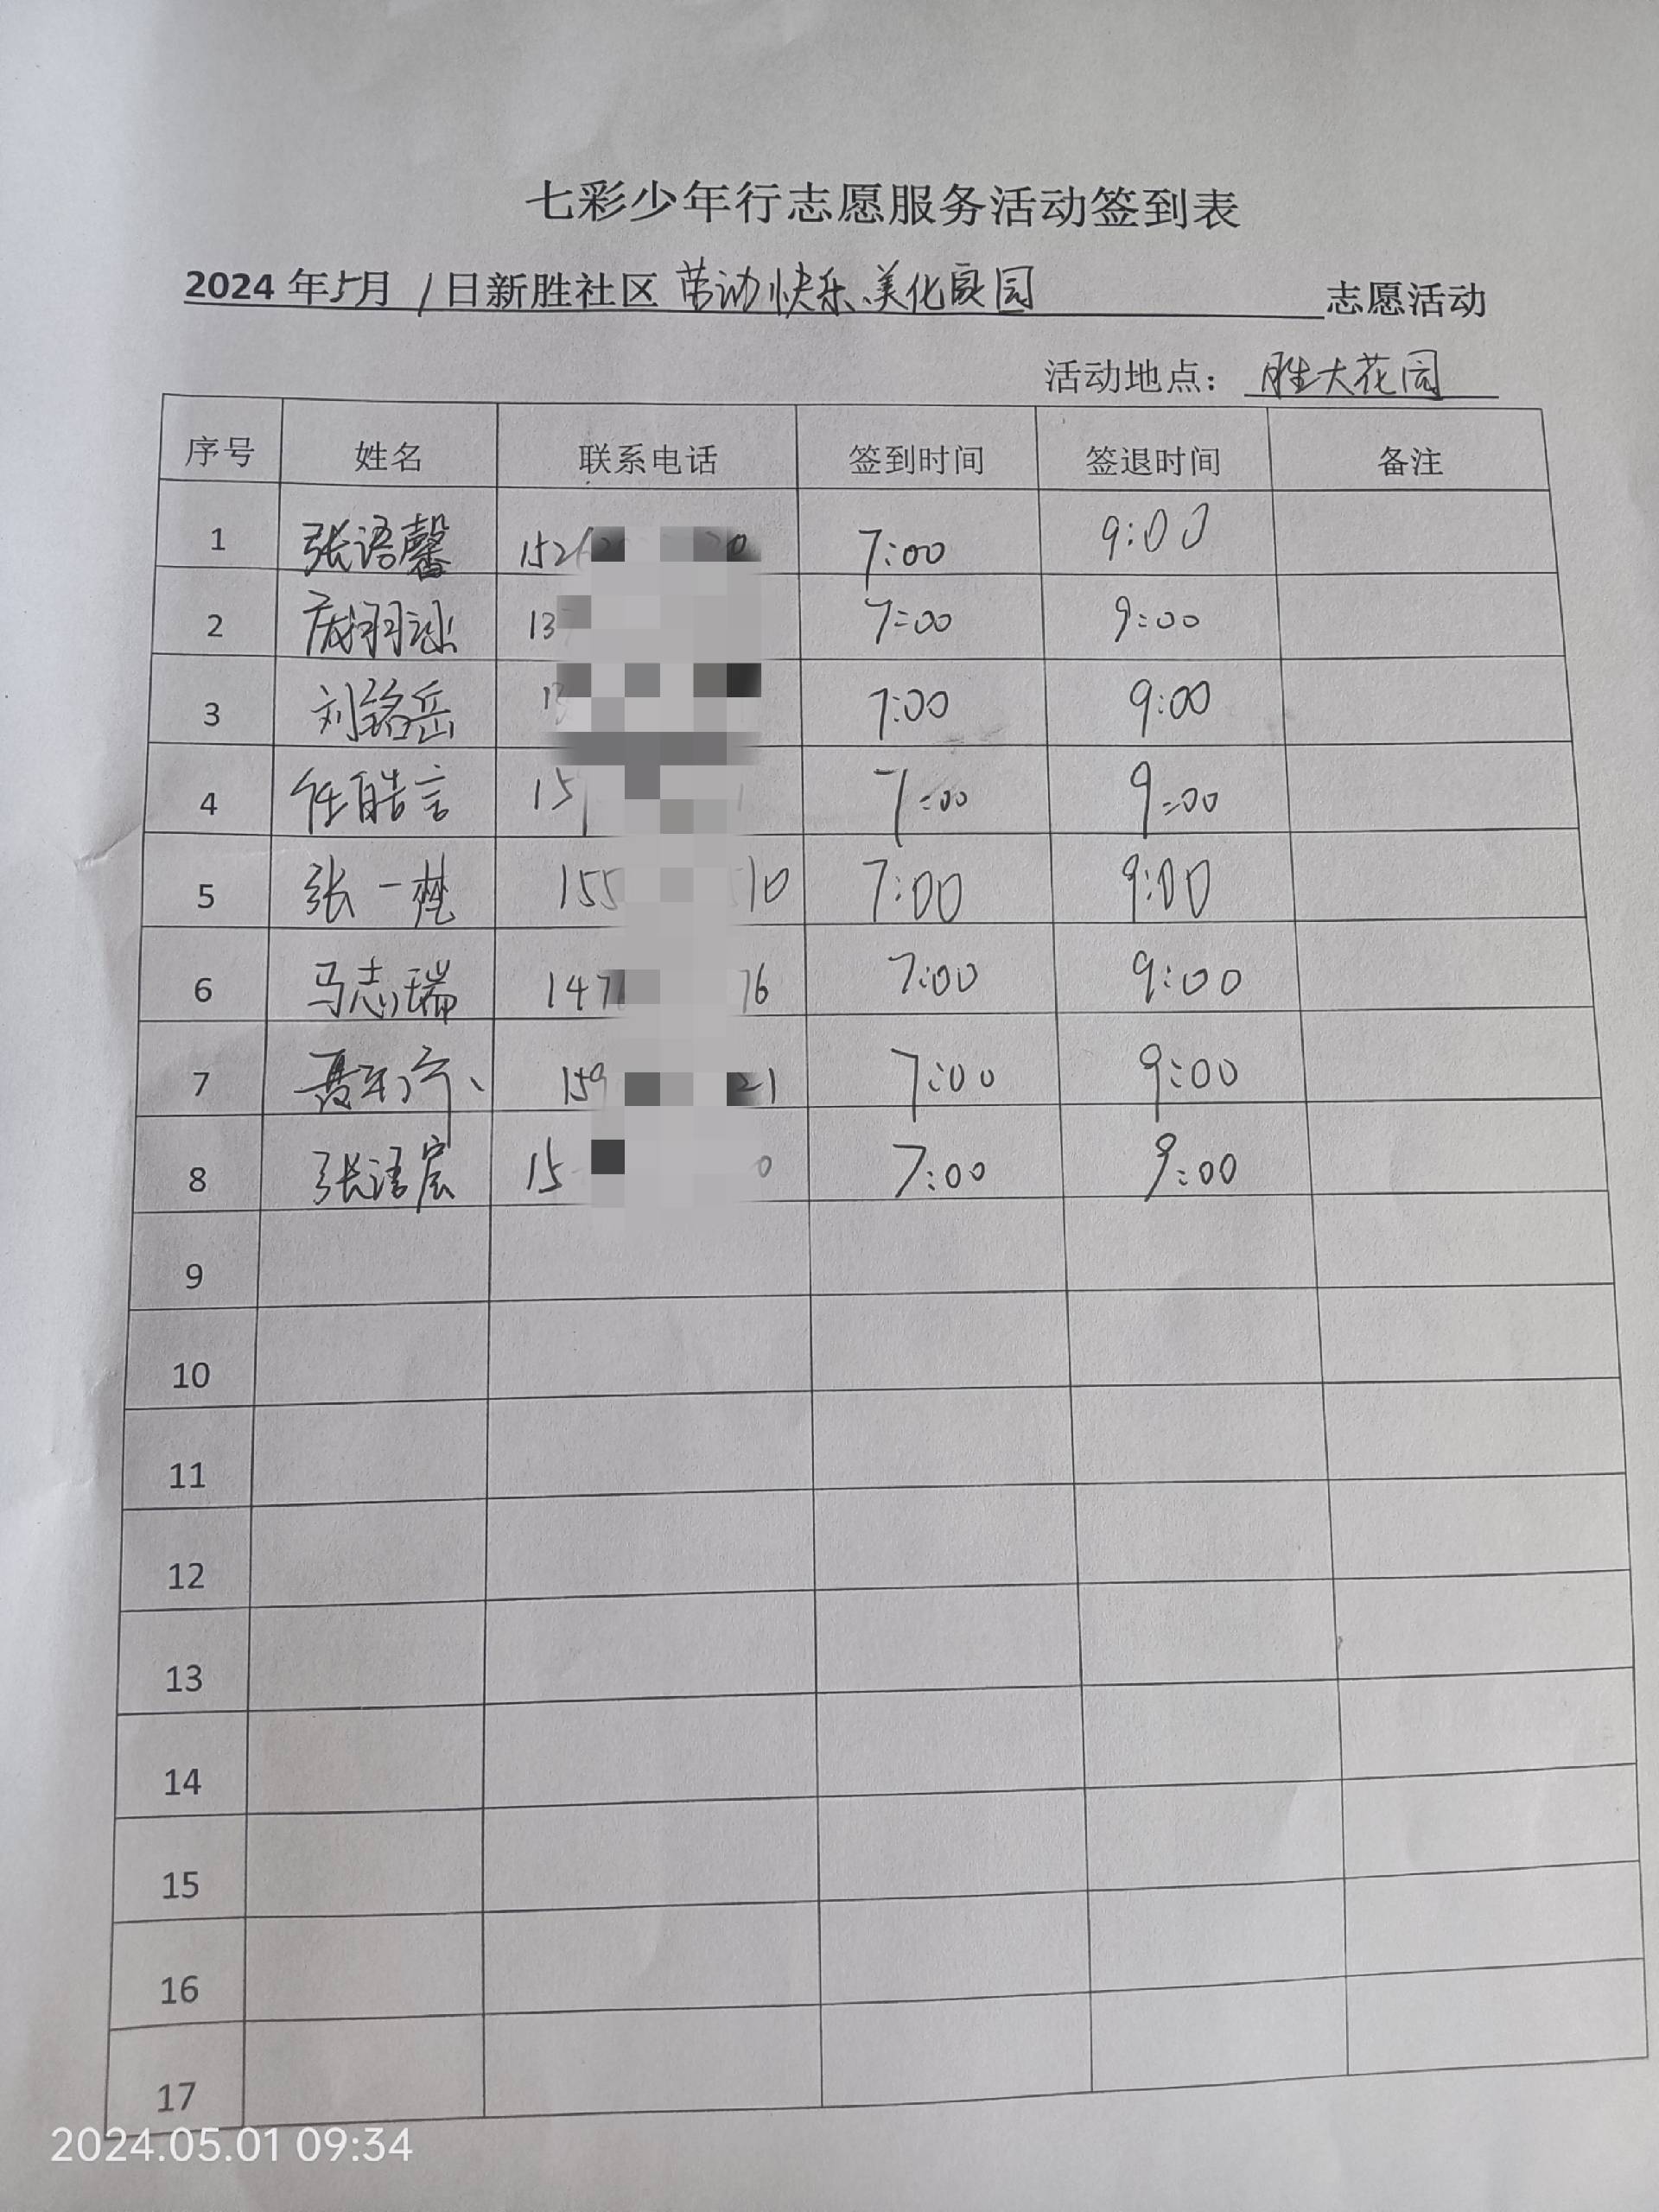 七彩少年行志愿服务活动签到表
2024年5月1日新胜社区劳动快乐、美化家园 志愿活动
活动地点：胜大花园
序号 姓名 联系电话 签到时间 签退时间 备注
1 张语馨 152 7:00 9:00
2 13 7:00 9:00
3 刘铭岳 13 7:00 9:00
4 任皓言 15 7:00 9:00
5 张一 155 10 7:00 9:00
6 马志瑞 147 76 7:00 9:00
7 159 21 7:00 9:00
8 张语宸 15 0 7:00 9:00
9
10
11
12
13
14
15
16
17
2024.05.01 09:34